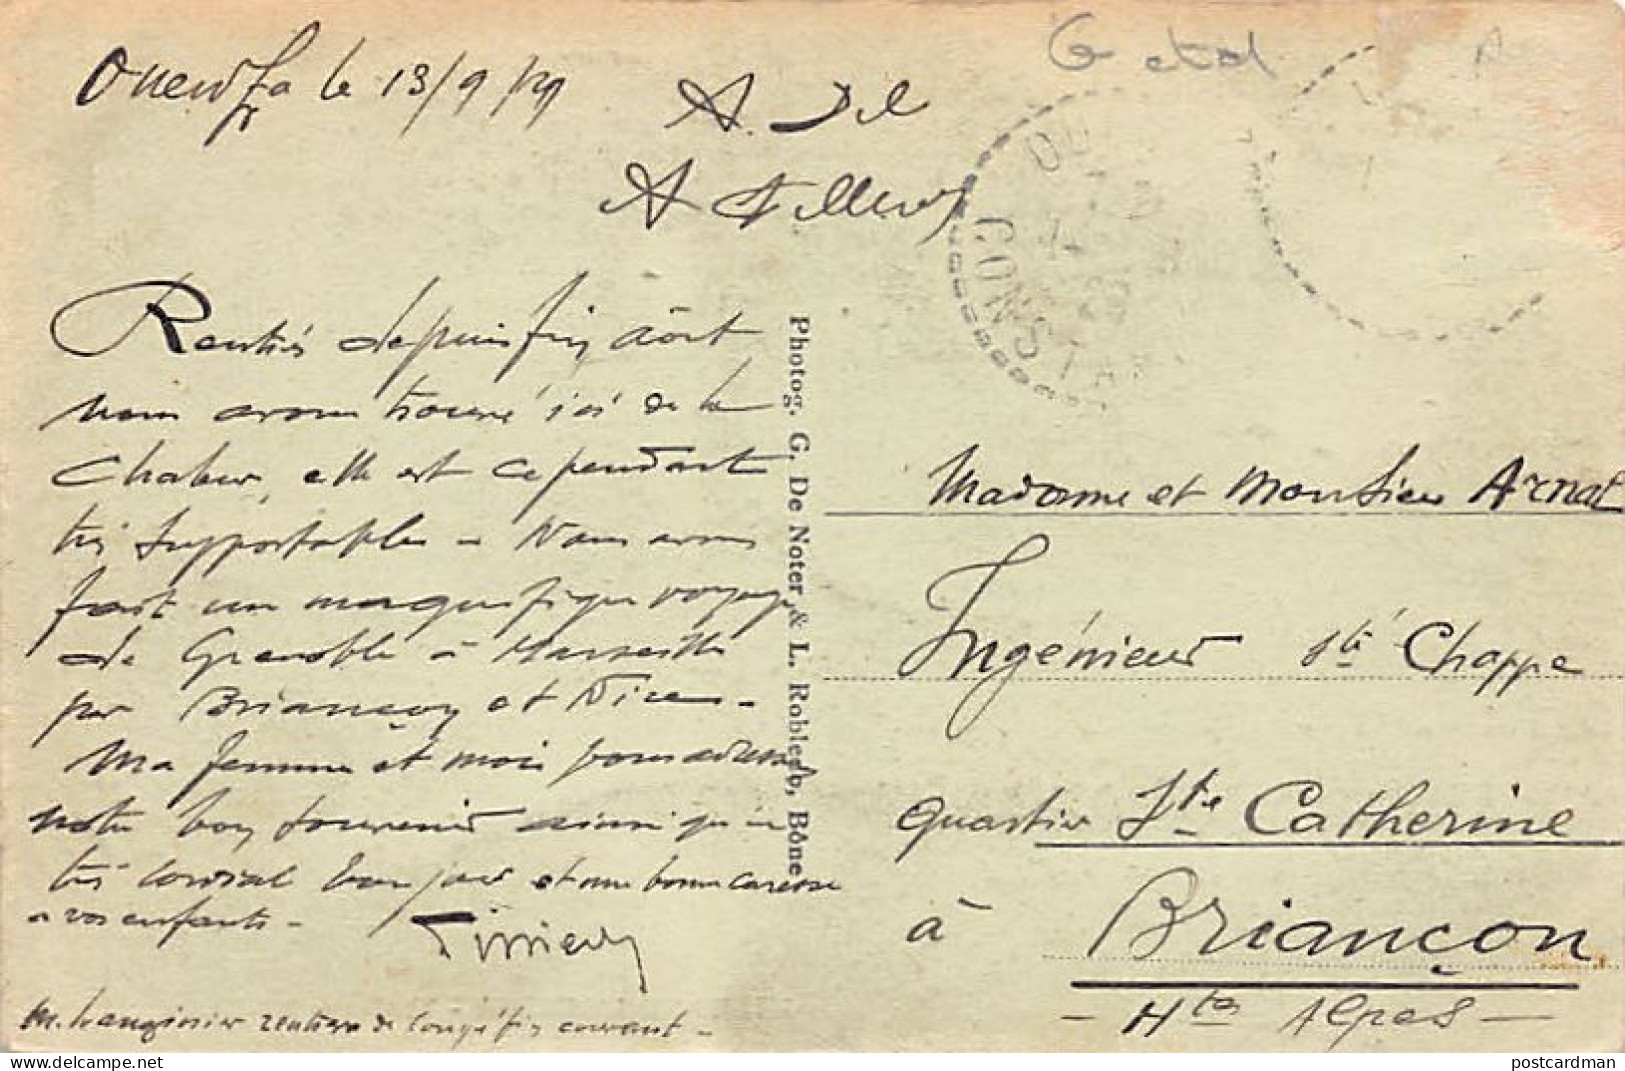 Ouenza le 13/9/29
Rentrés depuis fin août
nous avons trouvé ici de la
Chaleur, elle est cependant
très supportable - Nous avons
fait un magnifique voyage
de Grenoble à Marseille
par Briançon et Nice -
Ma femme et moi vous adressons
notre bon souvenir ainsi qu'un
très cordial bonjour et une bonne caresse
à vos enfants -
M. rentrera de congé fin courant -
Photog. G. De Noter & L. Robledo, Bône
CONSTAN
Madame et Monsieur Arnal
Ingénieur sté Chappe
Quartier Ste Catherine
à Briançon
- Htes Alpes -
postcardman